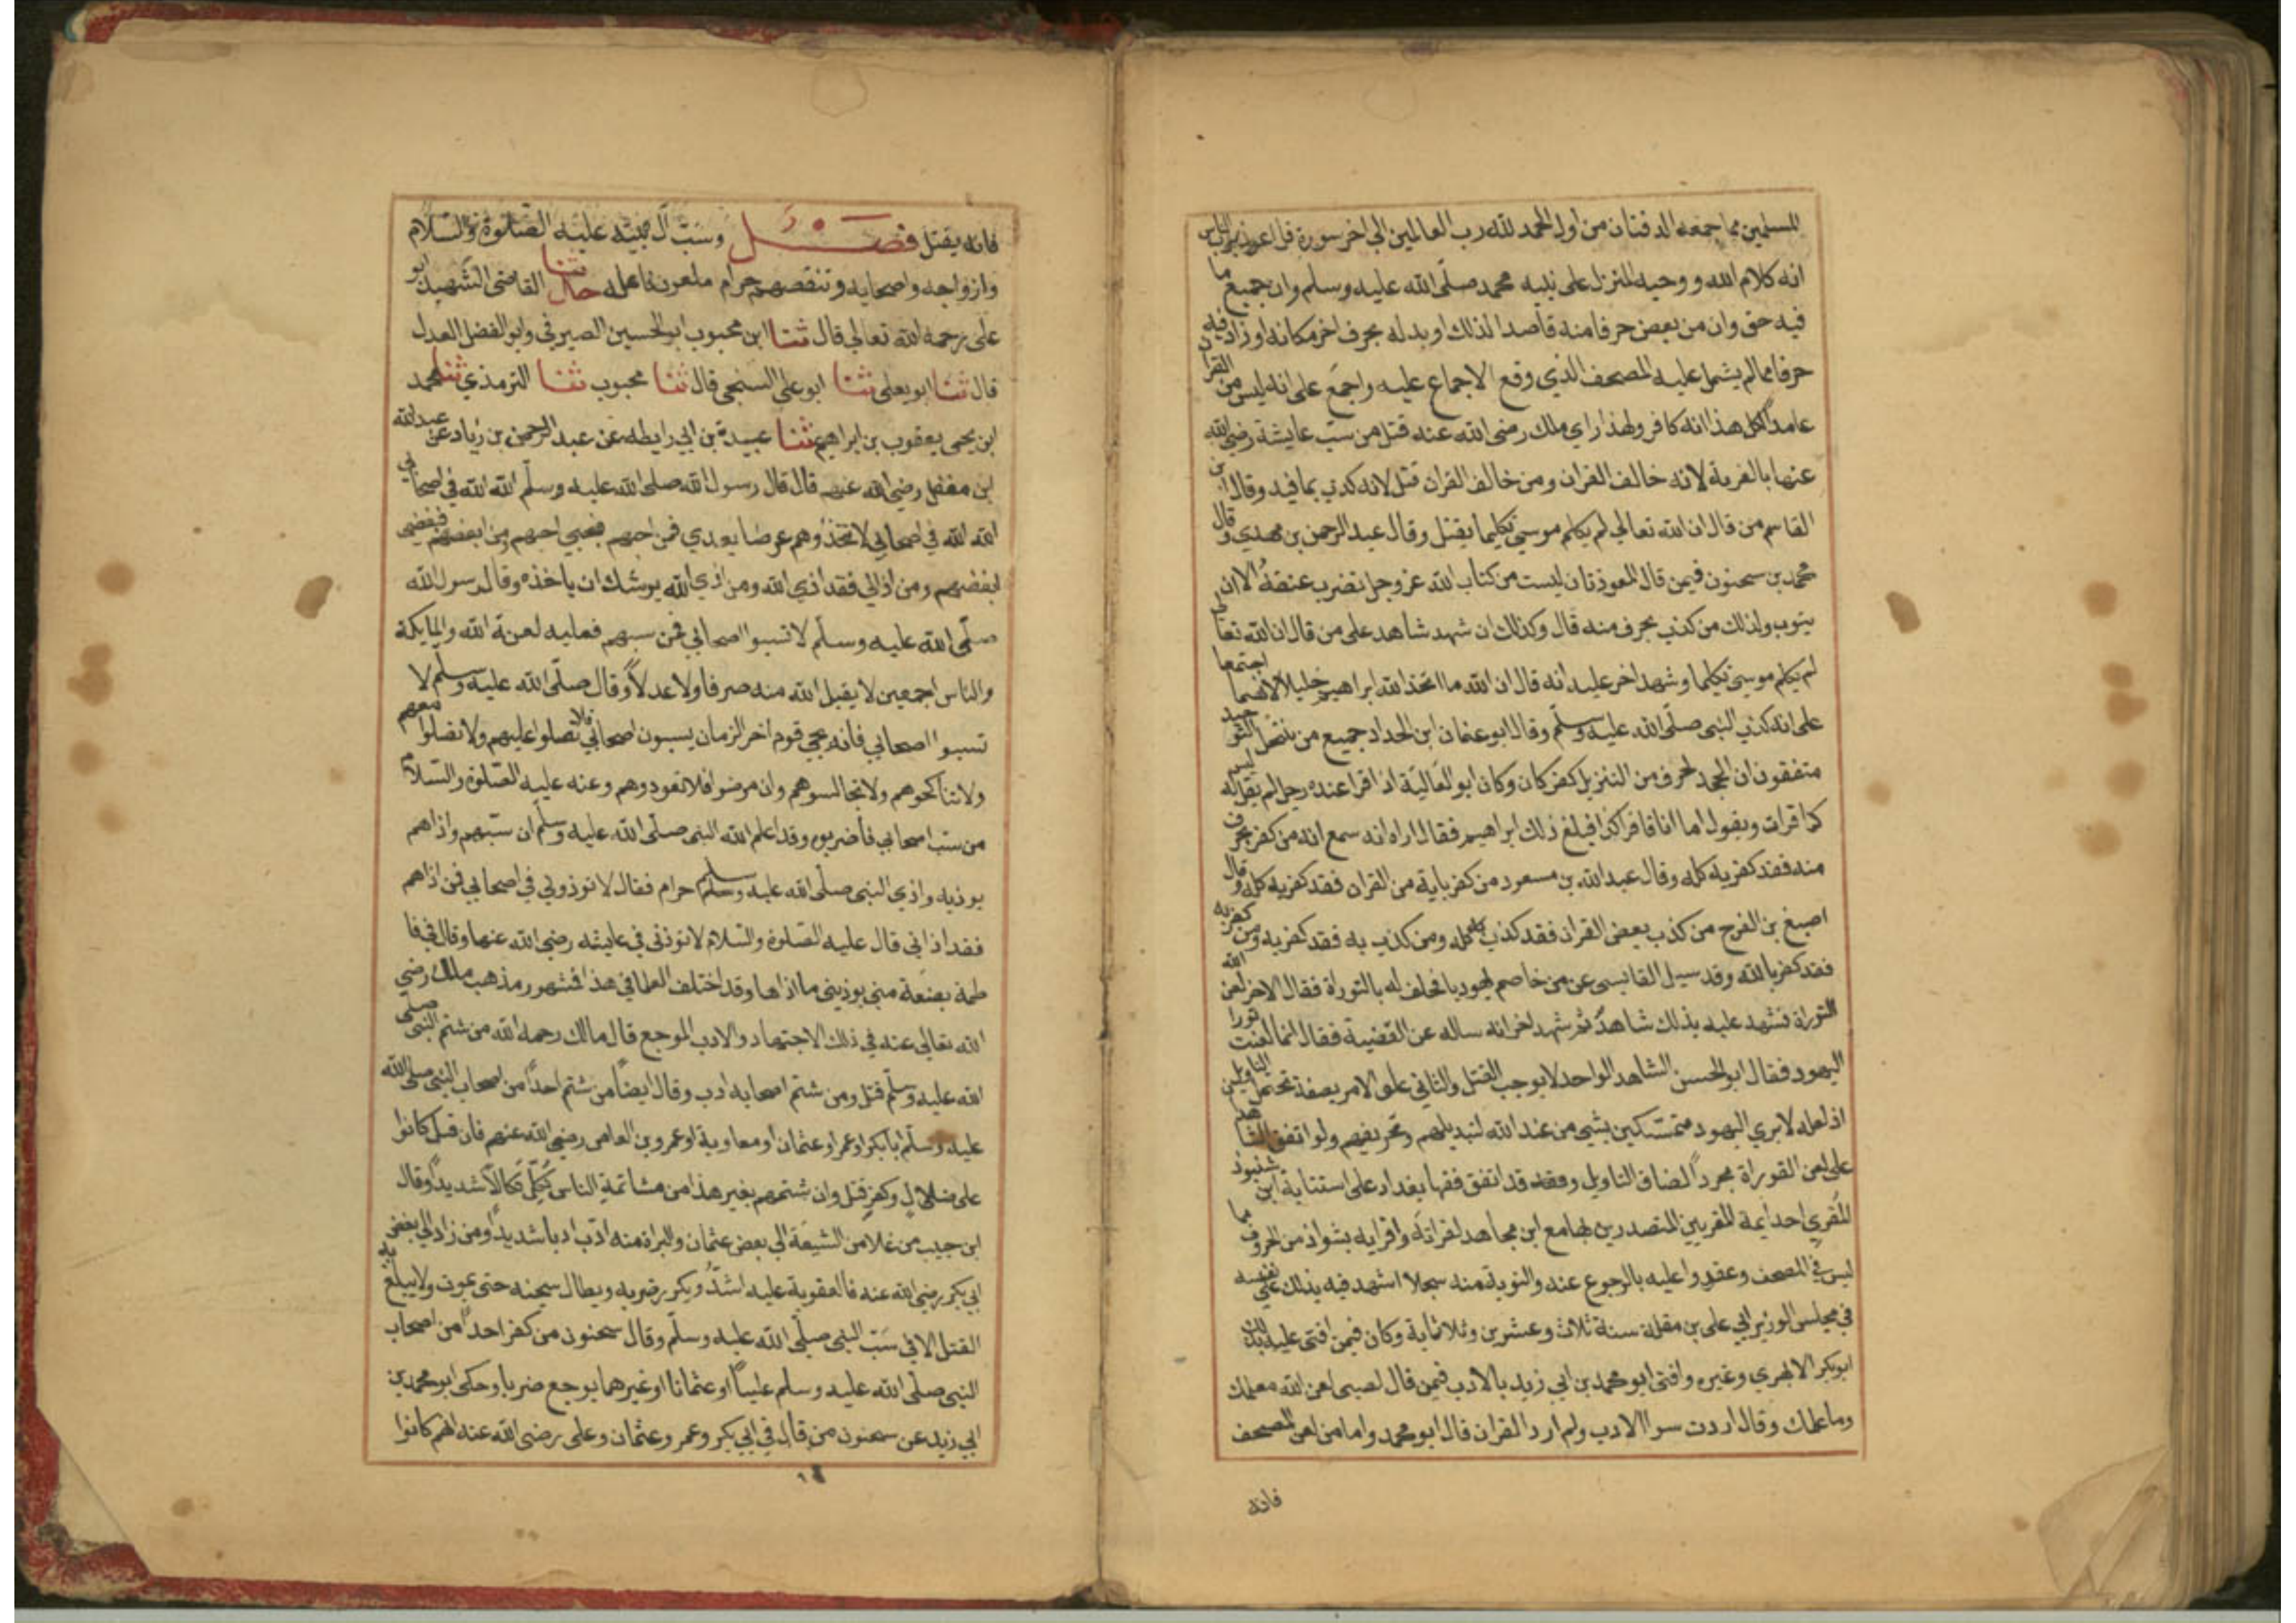 للمسلمين مما جمعه الدفتان من اول الحمد لله رب العالمين الي اخر سورة قل اعوذ برب الناس
انه كلام الله ووحيه المنزل على نبيه محمد صلى الله عليه وسلم وان جميع ما
فيه حق وان من بعض حرفا منه قاصدا لذلك او بدله بحرف اخر مكانه او زاد فيه
حرفا مما لم يشتمل عليه المصحف الذي وقع الاجماع عليه واجمع على انه ليس من القران
عامدا لكل هذا انه كافر ولهذا راي ملك رضى الله عنه قتل من سب عايشة رضى الله
عنها بالفرية لانه خالف القران ومن خالف القران قتل لانه كذب بما فيه وقال ابن
القاسم من قال ان الله تعالي لم يكلم موسى تكليما يقتل وقال عبد الرحمن بن مهدي وقال
محمد بن سحنون فيمن قال المعوذتان ليست من كتاب الله عز وجل تضرب عنقه الا ان
يتوب ولذلك من كذب بحرف منه قال وكذلك ان شهد شاهد على من قال ان الله تعالى
لم يكلم موسى تكليما وشهد اخر عليه انه قال ان الله ما اتخذ الله ابراهيم خليلا لانهما اجتمعا
على انه كذب النبى صلى الله عليه وسلم وقال ابو عثمان ابن الحداد جميع من ينتحل التوحيد
متفقون ان الجحد لحرف من التنزيل كفر كان وكان ابو العالية اذا قرا عنده رجل لم يقل له ليس
كما قرات ويقول اما انا فاقرا كذا فبلغ ذلك ابراهيم فقال اراه انه سمع انه من كفر بحرف
منه فقد كفر به كله وقال عبد الله بن مسعود من كفر باية من القران فقد كفر به كله وقال
اصبغ بن الفرج من كذب ببعض القران فقد كذب به كله ومن كذب به فقد كفر به ومن كفر به
فقد كفر بالله وقد سيل القابسى عن من خاصم يهوديا فحلف له بالتوراة فقال الاخر لعن الله
التوراة فشهد عليه بذلك شاهد ثم شهد اخر انه ساله عن القضية فقال انما لعنت تورا
اليهود فقال ابو الحسن الشاهد الواحد لا يوجب القتل والثاني علق الامر بصفة تحتمل التاويل
اذ لعله لا يري اليهود متمسكين بشيي من عند الله لتبديلهم وتحريفهم ولو اتفق الشاهد
على لعن التوراة مجردا لضاق التاويل وقد اتفق فقها بغداد على استتابة ابن شنبوذ
المقري احد ايمة المقريين المتصدرين بها مع ابن مجاهد لقراته واقرايه بشواذ من الحروف مما
ليس في المصحف وعقدوا عليه بالرجوع عنه والتوبة منه سجلا اشهد فيه بذلك على نفسه
في مجلس الوزير ابي على بن مقلة سنة ثلاث وعشرين وثلاثماية وكان فيمن افتى عليه بذلك
ابو بكر الابهري وغيره وافتى ابو محمد بن ابي زيد بالادب فيمن قال لصبى لعن الله معلمك
وما علمك وقال اردت سوا الادب ولم ارد القران قال ابو محمد واما من لعن المصحف
فانه
فانه يقتل فصل وسب آل نبيه عليه الصلوة والسلام
وازواجه واصحابه وتنقصهم حرام ملعون فاعله حدثنا القاضى الشهيد ابو
على رحمه الله تعالي قال ثنا ابن محبوب ابو الحسين الصيرفي وابو الفضل العدل
قال ثنا ابو يعلى ثنا ابو على السنجى قال ثنا محبوب ثنا الترمذي ثنا محمد
ابن يحيى يعقوب بن ابراهيم ثنا عبيدة بن ابي رايطه عن عبد الرحمن بن زياد عن عبد الله
ابن مغفل رضى الله عنهم قال قال رسول الله صلى الله عليه وسلم الله الله في اصحابي
الله الله في اصحابي لا تتخذوهم عرضا بعدي فمن احبهم فبحبي احبهم ومن ابغضهم فببغضى
ابغضهم ومن اذاني فقد اذي الله ومن اذي الله يوشك ان ياخذه وقال رسول الله
صلى الله عليه وسلم لا تسبوا اصحابي فمن سبهم فعليه لعنة الله والملايكة
والناس اجمعين لا يقبل الله منه صرفا ولا عدلا وقال صلى الله عليه وسلم لا
تسبوا اصحابي فانه يجي قوم اخر الزمان يسبون اصحابي فلا تصلوا عليهم ولا تصلوا معهم
ولا تناكحوهم ولا تجالسوهم وان مرضوا فلا تعودوهم وعنه عليه الصلوة والسلام
من سب اصحابي فاضربوه وقد اعلم الله النبى صلى الله عليه وسلم ان سبهم واذاهم
يوذيه واذي النبى صلى الله عليه وسلم حرام فقال لا توذوني في اصحابي فمن اذاهم
فقد اذاني قال عليه الصلوة والسلام لا توذني في عايشه رضى الله عنها وقال في فا
طمة بضعة مني يوذيني ما اذاها وقد اختلف العلما في هذا فمشهور مذهب ملك رضى
الله تعالى عنه في ذلك الاجتهاد والادب الموجع قال مالك رحمه الله من شتم النبى صلى
الله عليه وسلم قتل ومن شتم اصحابه ادب وقال ايضا من شتم احدا من اصحاب النبى صلى الله
عليه وسلم ابا بكر او عمر او عثمان او معاوية او عمرو بن العاص رضى الله عنهم فان قيل كانوا
على ضلال وكفر قتل وان شتمهم بغير هذا من مشاتمة الناس نكل نكالا شديدا وقال
ابن حبيب من غلا من الشيعة الي بعض عثمان والبراة منه ادب ادبا شديدا ومن زاد الي بغض
ابي بكر رضى الله عنه فالعقوبة عليه اشد ويكرر ضربه ويطال سجنه حتى يموت ولا يبلغ به
القتل الا في سب النبى صلى الله عليه وسلم وقال سحنون من كفر احدا من اصحاب
النبى صلى الله عليه وسلم عليا او عثمانا او غيرهما يوجع ضربا وحكى ابو محمد بن
ابي زيد عن سحنون من قال في ابي بكر وعمر وعثمان وعلى رضى الله عنه انهم كانوا